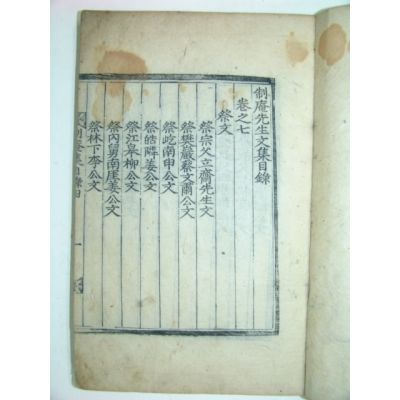 制庵先生文集目錄
卷之七
祭文
祭宗父立齋先生文
祭樊巖蔡文肅公文
祭屹南申公文
祭皓隣姜公文
祭江皐柳公文
祭內舅南厓姜公文
祭林下李公文